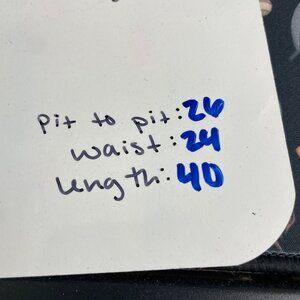 pit to pit: 26
waist: 24
length: 40